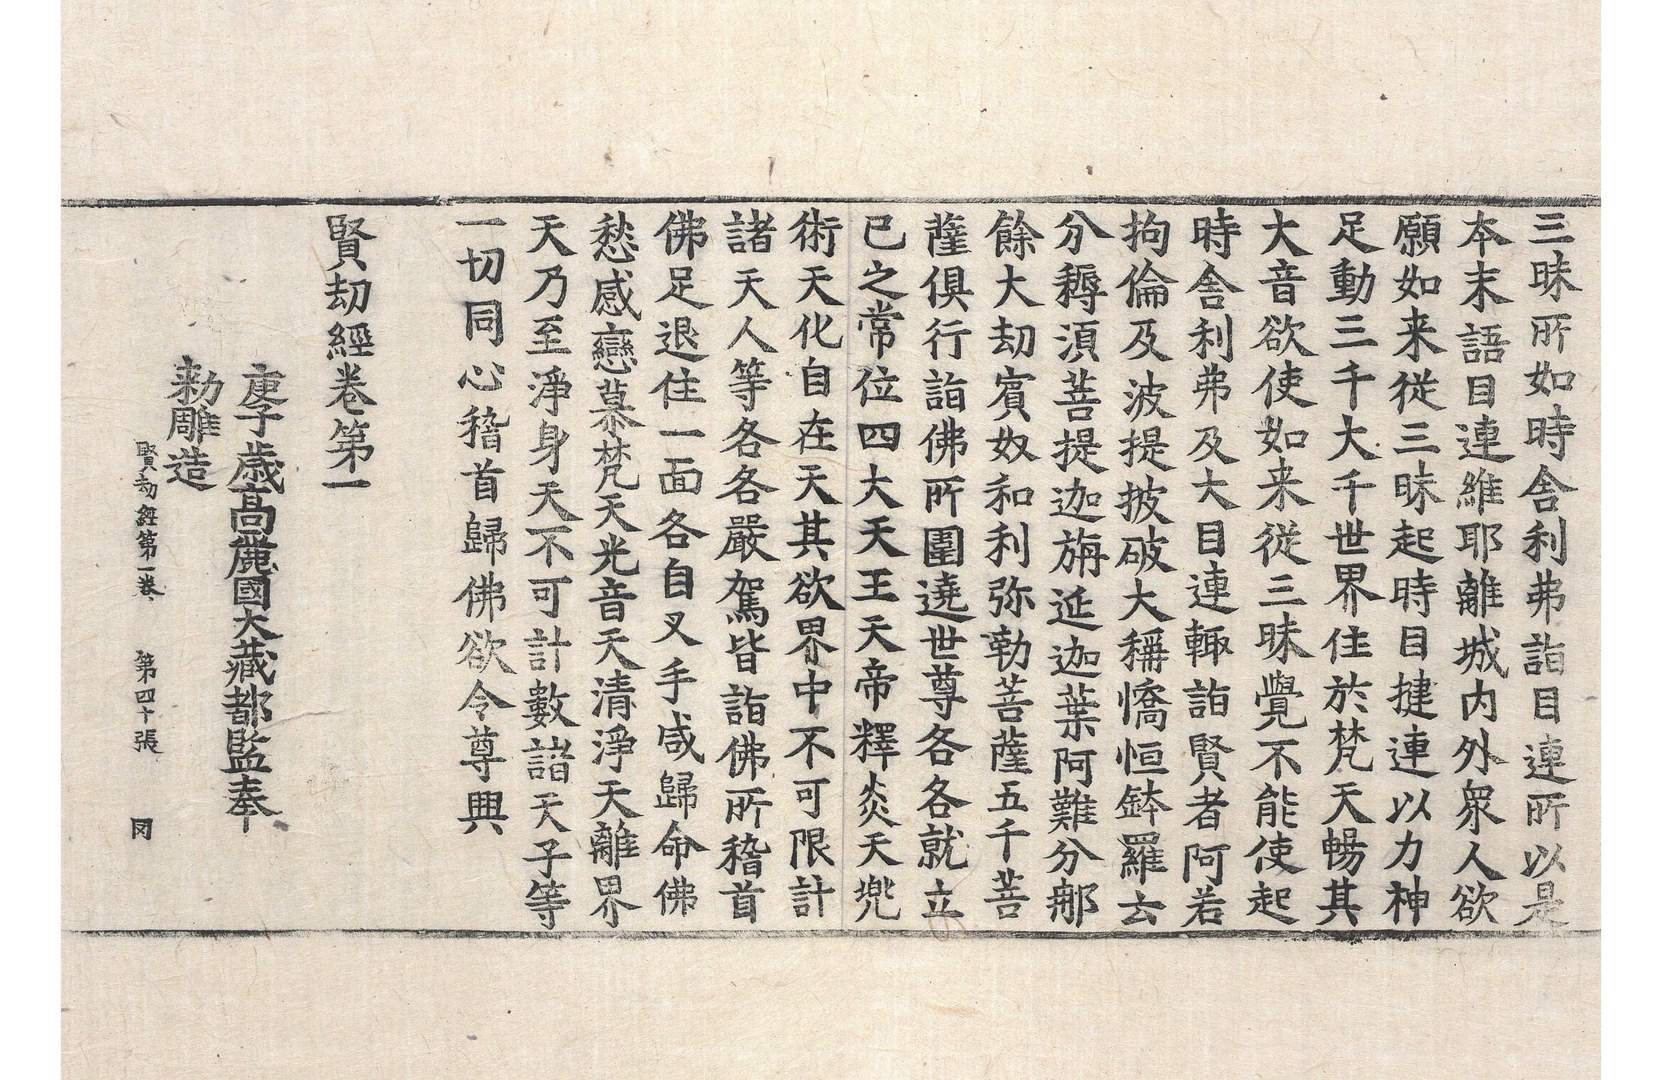 三昧所如時舍利弗詣目連所以是
本末語目連維耶離城內外衆人欲
願如来從三昧起時目揵連以力神
足動三千大千世界住於梵天暢其
大音欲使如来從三昧覺不能使起
時舍利弗及大目連輙詣賢者阿若
拘倫及波提披破大稱憍恒鉢羅云
分耨湏菩提迦旃延迦葉阿難分䣌
餘大劫賓奴和利弥勒菩薩五千菩
薩俱行詣佛所圍遶世尊各各就立
已之常位四大天王天帝釋炎天兜
術天化自在天其欲界中不可限計
諸天人等各各嚴駕皆詣佛所稽首
佛足退住一面各自叉手咸歸命佛
愁慼戀慕梵天光音天清淨天離界
天乃至淨身天不可計數諸天子等
一切同心稽首歸佛欲令尊興
賢劫經卷第一
庚子歲高麗國大藏都監奉
勅雕造
賢劫經第一卷 第四十張 冈